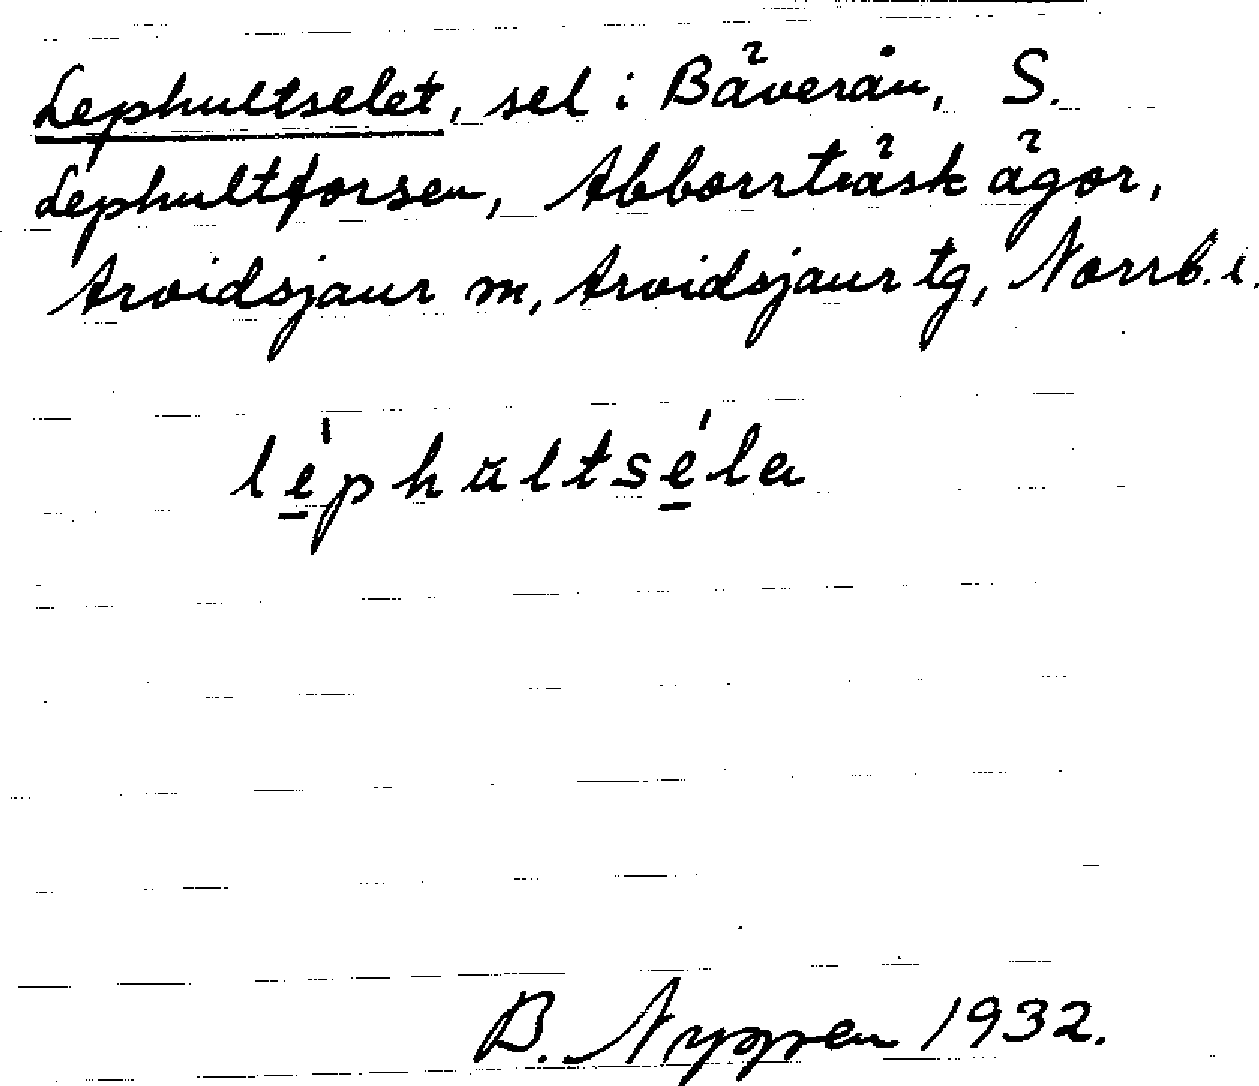 Lephultselet, sel i Bäverån, S.
Lephultforsen, Abborrträsk ägor,
Arvidsjaur sn, Arvidsjaur tg, Norrb. l.
lé̱phu̇ltsé̱la
B. Nyggren 1932.